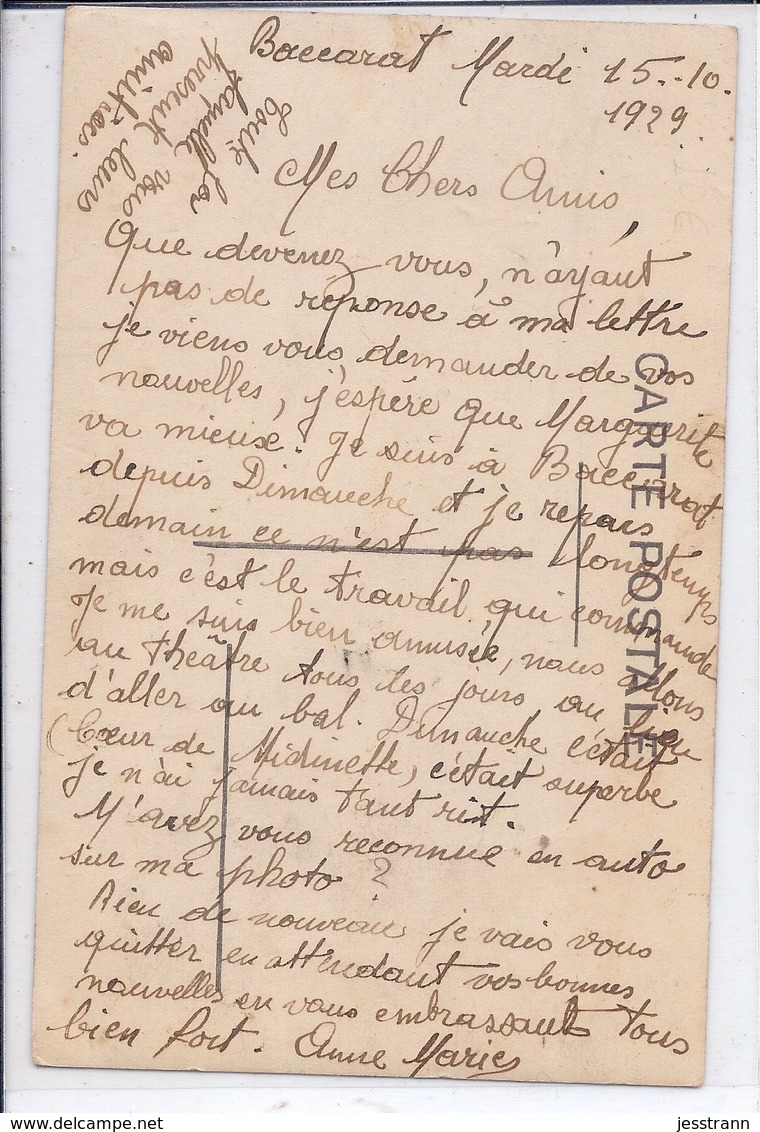 Baccarat Mardi 15-10.
1929
Toute la
famille vous
présente leurs
amitiés.
Mes Chers Amis,
Que devenez vous, n'ayant
pas de réponse à ma lettre
je viens vous demander de vos
nouvelles, j'espère que Marguerite
va mieux. Je suis à Baccarat
depuis Dimanche et je repars
demain ce n'est pas longtemps
mais c'est le travail qui commande
Je me suis bien amusée, nous allons
au théâtre tous les jours au lieu
d'aller au bal. Dimanche c'était
(Cœur de Midinette, c'était superbe
je n'ai jamais tant rit.
M'avez vous reconnue en auto
sur ma photo ?
Rien de nouveau je vais vous
quitter en attendant vos bonnes
nouvelles en vous embrassant tous
bien fort. Anne Marie
CARTE POSTALE
www.delcampe.net
jesstrann